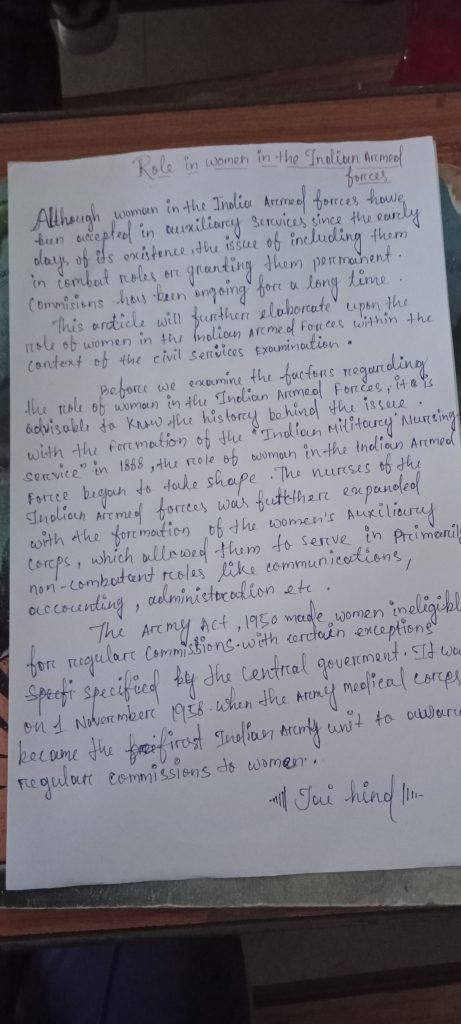 Role in women in the Indian Armed
forces
Although woman in the India Armed forces have
been accepted in auxiliary services since the early
days of its existence, the issue of including them
in combat roles or granting them permanent.
Commisions has been ongoing for a long time.
This article will further elaborate upon the
role of women in the Indian Armed Forces within the
context of the civil services Examination.
Before we examine the factors regarding
the role of woman in the Indian Armed Forces, it is
advisable to know the history behind the issue.
with the formation of the "Indian Military Nursing
service" in 1888, the role of woman in the Indian Armed
Force began to take shape. The nurses of the
Indian Armed forces was further expanded
with the formation of the women's Auxiliary
corps, which allowed them to serve in Primaril
non-combatant roles like communications,
accounting, administration etc.
The Army Act, 1950 made women ineligibl
for regular Commissions with certain exceptions
Specfi specified by the central goverment. It wa
on 1 November 1958. when the Army medical corps
became the first Indian Army unit to awar
regular commissions to women.
Jai hind